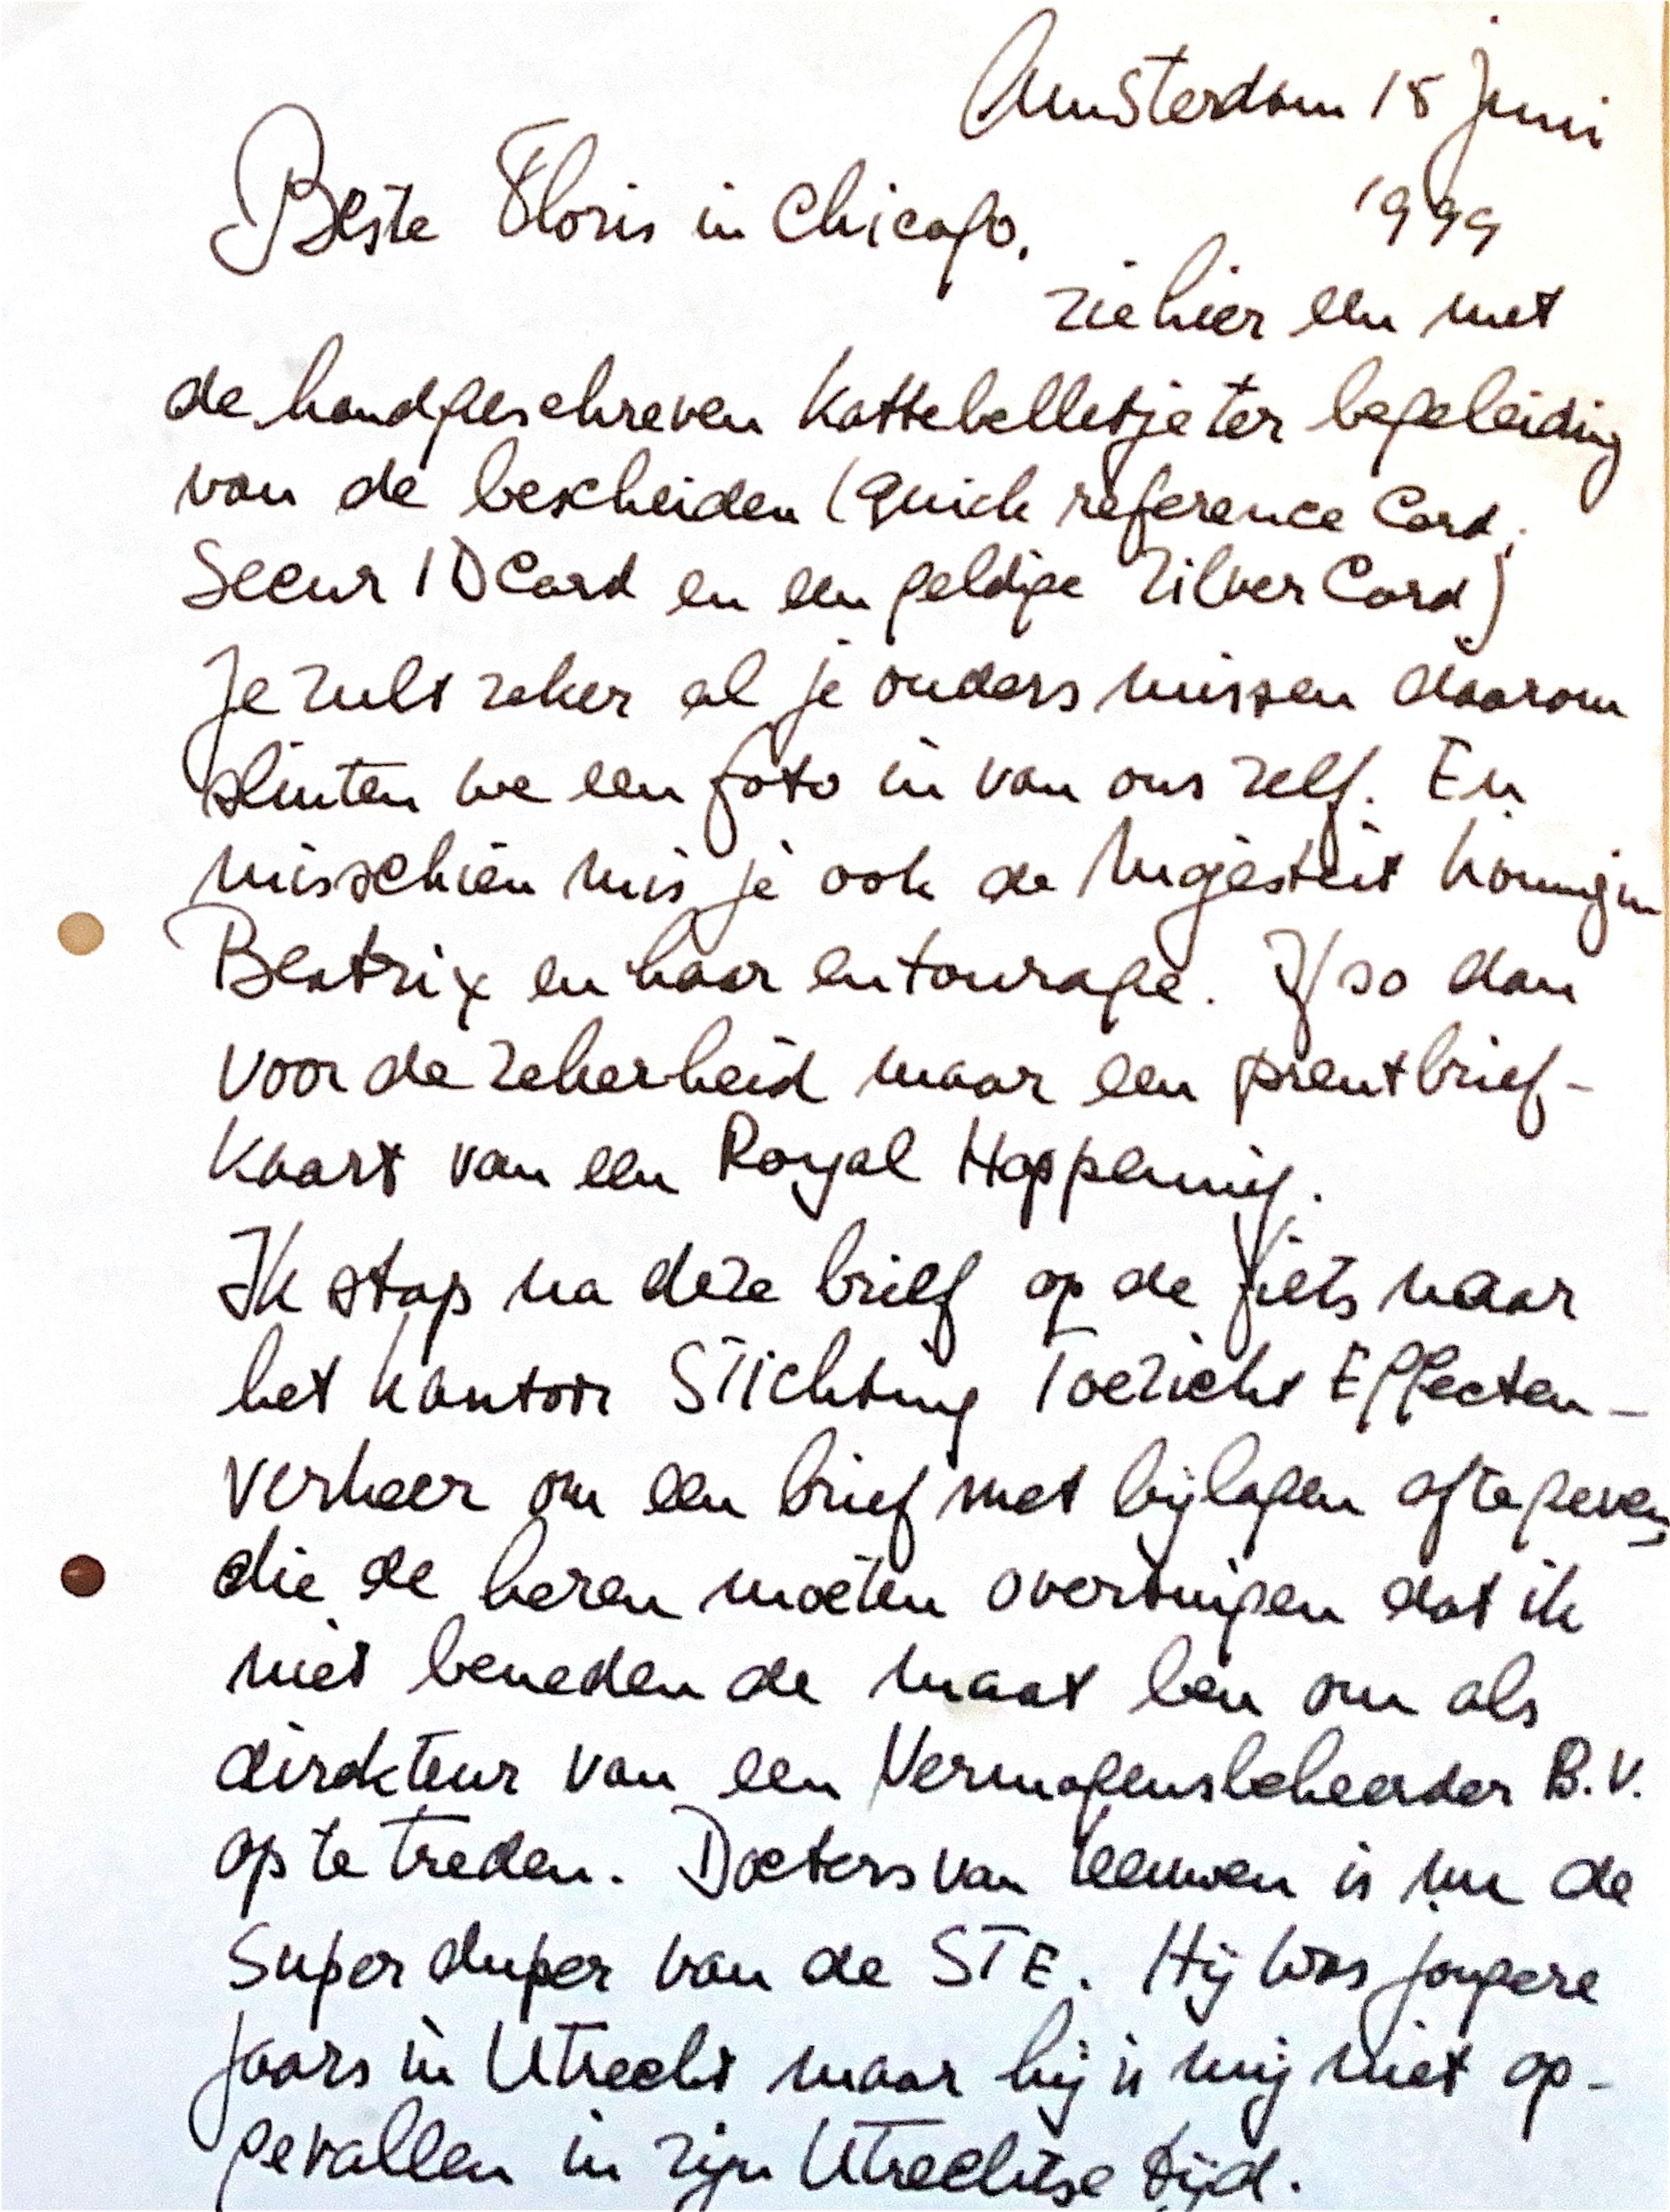 Amsterdam 15 juni
1999
Beste Floris in Chicago,
ziehier een met
de handgeschreven kattebelletje ter begeleiding
van de bescheiden (Quick reference Card;
Secur ID Card en een geldige Zilver Card)
Je zult zeker al je ouders missen daarom
sluiten we een foto in van ons zelf. En
misschien mis je ook de Majesteit koningin
Beatrix en haar entourage. If so dan
voor de zekerheid maar een prentbrief-
kaart van een Royal Happening.
Ik stap na deze brief op de fiets naar
het kantoor Stichting Toezicht Effecten-
verkeer om een brief met bijlagen af te geven,
die de heren moeten overtuigen dat ik
niet beneden de maat ben om als
direkteur van een Vermogensbeheerder B.V.
op te treden. Docters van Leeuwen is nu de
Super duper van de STE. Hij was jongere
jaars in Utrecht maar hij is mij niet op-
gevallen in zijn Utrechtse tijd.